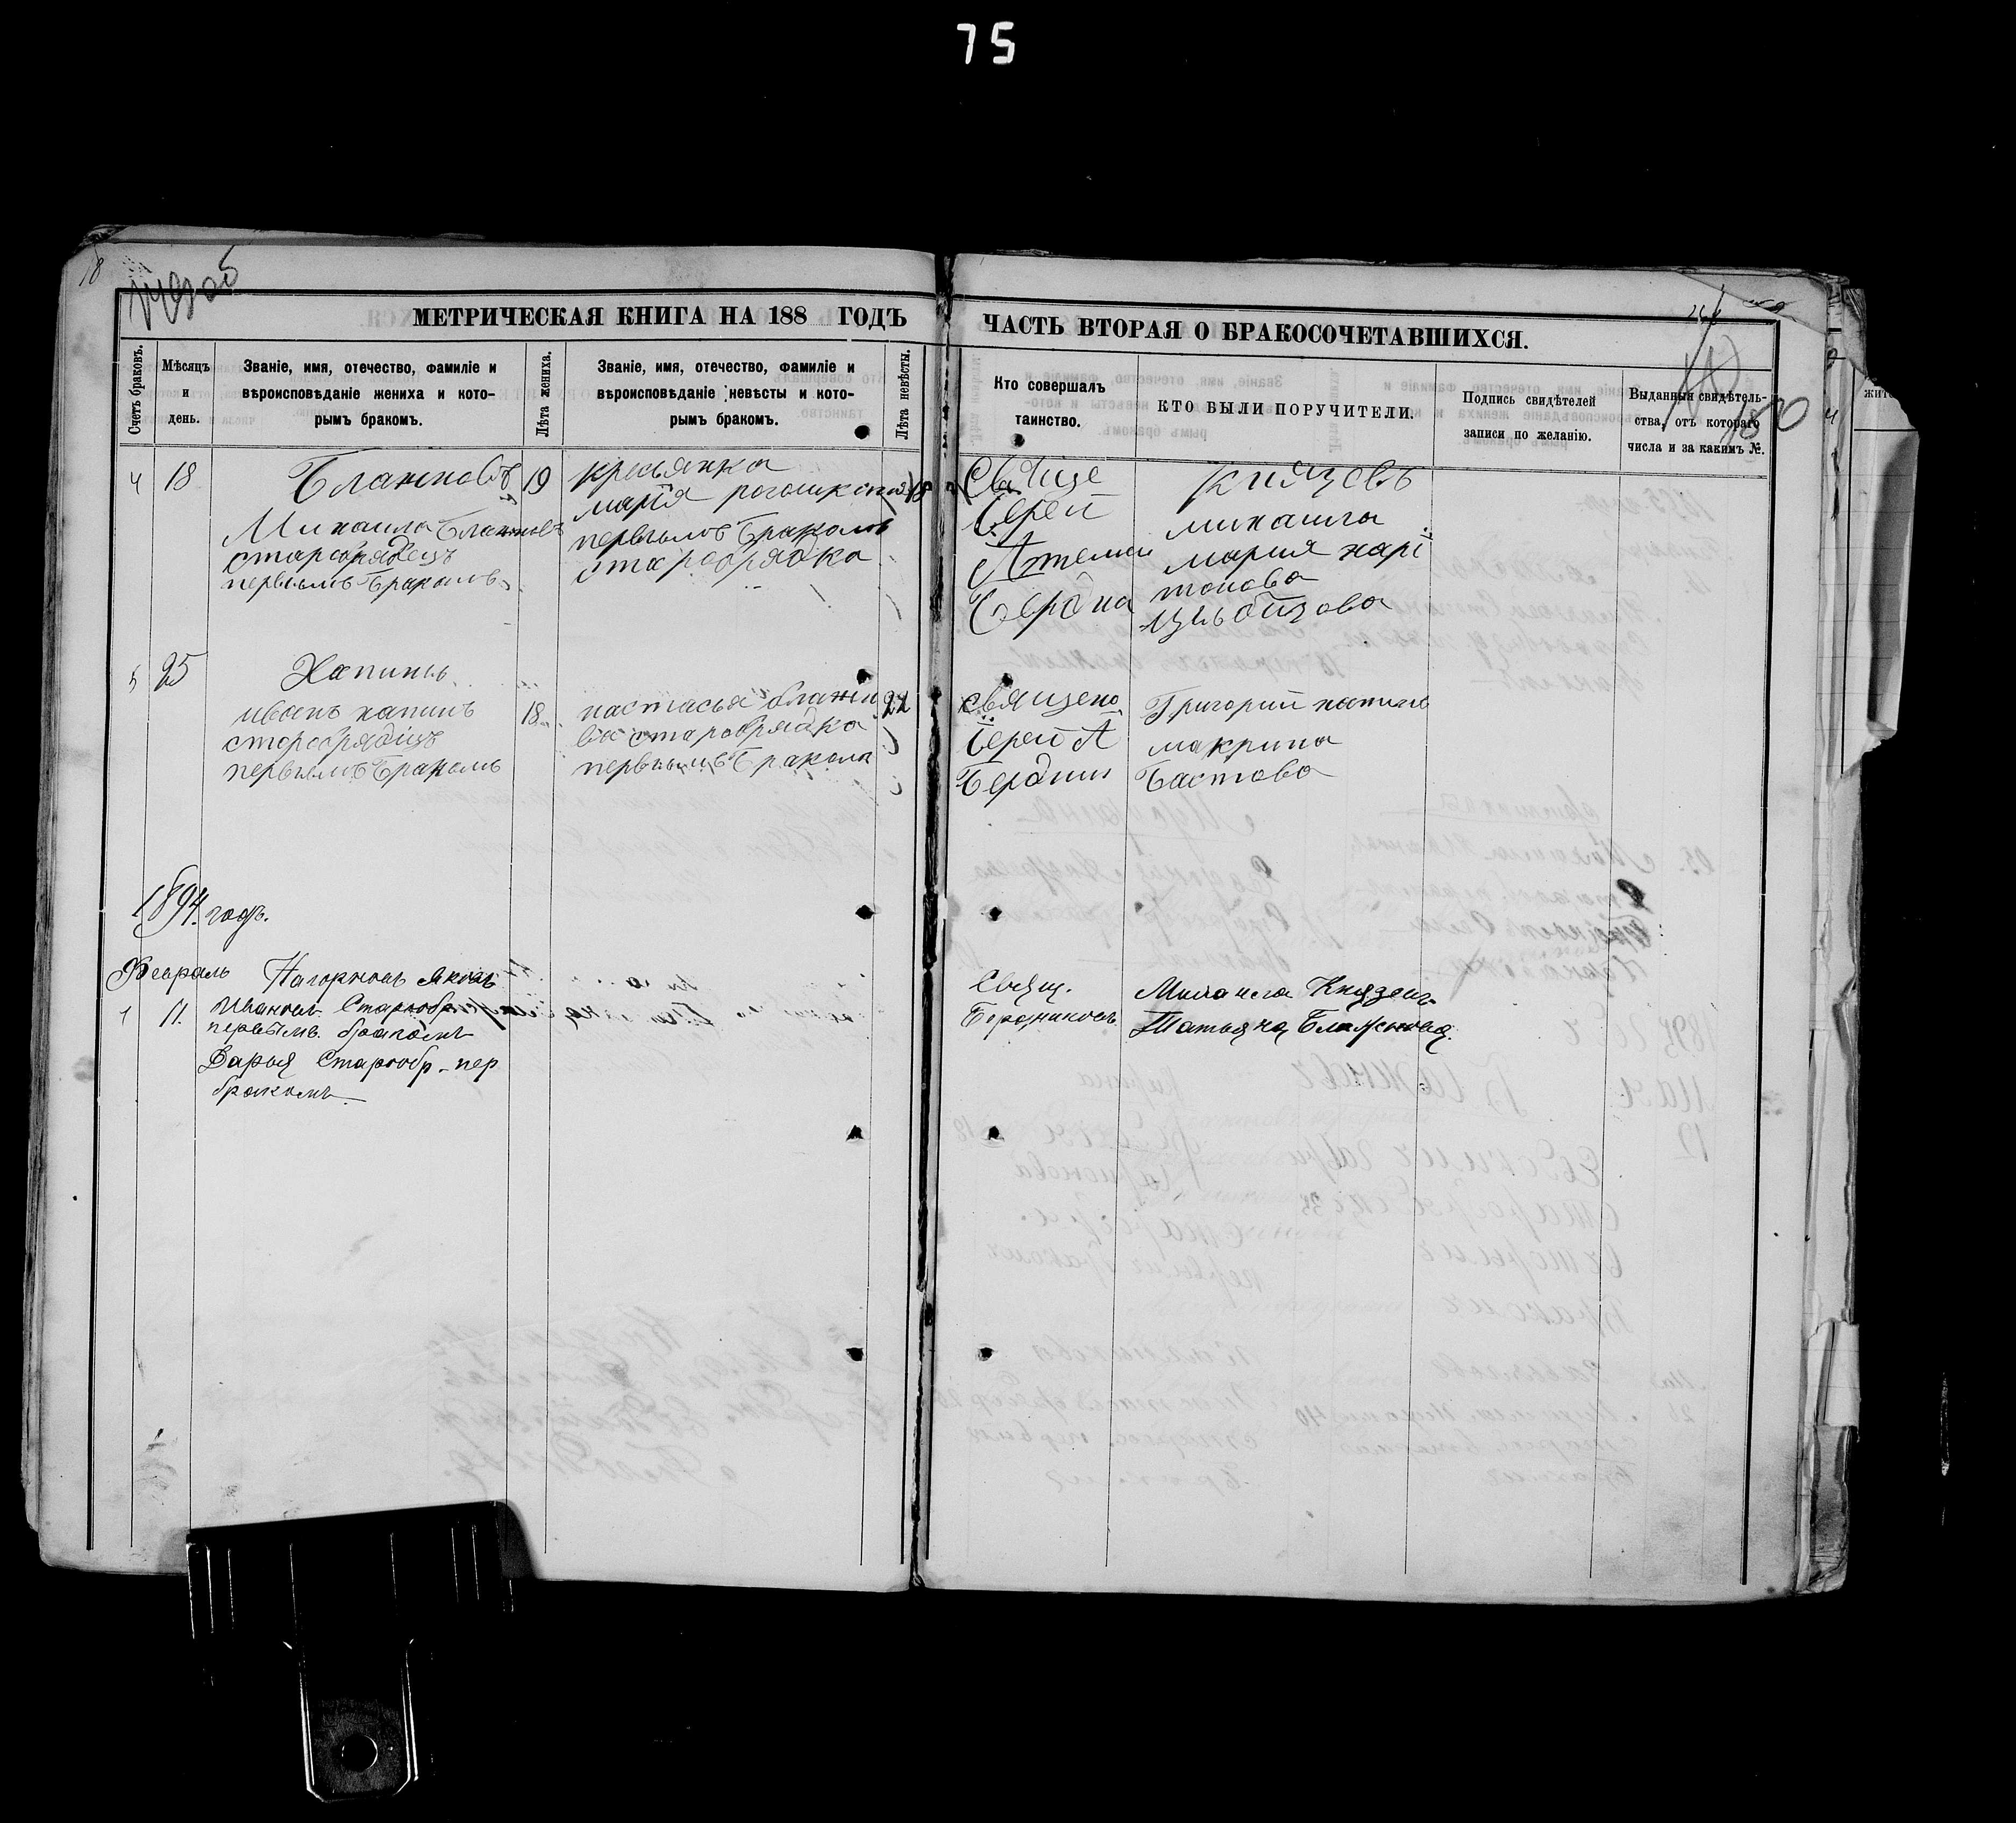 75
18
МЕТРИЧЕСКАЯ КНИГА НА 188 ГОДЪ
ЧАСТЬ ВТОРАЯ О БРАКОСОЧЕТАВШИХСЯ.
Счетъ браковъ.
Мѣсяцъ
и
день.
Званіе, имя, отечество, фамиліе и
вѣроисповѣданіе жениха и кото-
рымъ бракомъ.
Лѣта жениха.
Званіе, имя, отечество, фамиліе и
вѣроисповѣданіе невѣсты и кото-
рымъ бракомъ.
Лѣта невѣсты.
Кто совершалъ
таинство.
КТО БЫЛИ ПОРУЧИТЕЛИ.
Подпись свидѣтелей
записи по желанію.
Выданныя свидѣтель-
ства, отъ котораго
числа и за какимъ №.
4
18
Блажновъ
Михаила Блажновъ
старобрядецъ
первымъ Бракомъ
19
кресьянка
мария
первымъ Бракомъ
старобрядка
18
Свяще
Iерей
Артемии
Бердни
Князевъ
михаила
мария харі
тонова
5
25
Хапинъ
иванъ хапинъ
старобрядецъ
первымъ Бракомъ
18
настасья блажно
ва старобрядка
первымъ Бракомъ
22
священо
Iерей А
Бердни
Григорий хапинъ
макрина
Бастова
1894. годъ.
Февраль
1
11.
Нагорновъ Яковъ
Ивановъ. Старообр.
первымъ. бракомъ
Дарья Старообр. пер
бракомъ.
Свящ.
Бердниковъ
Михаила Князевъ.
Татьяна Блажнова.